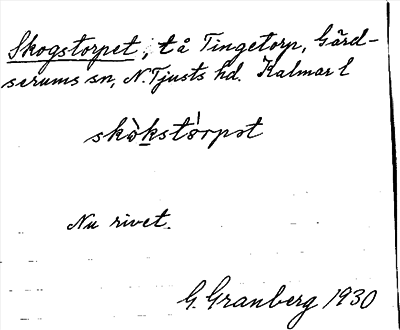 Skogstorpet, t å Tingetorp, Gärd-
serums sn, N. Tjusts hd. Kalmar l
skòkstórpət
Nu rivet.
G. Granberg 1930